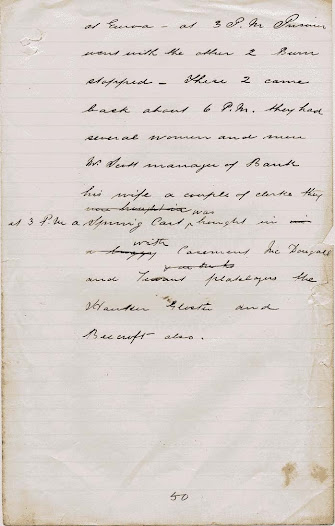 at Euroa – at 3 P.M
went with the other 2 Burn
stopped – These 2 came
back about 6 P.M. they had
several women and men
Mr Scott manager of Bank
his wife a couple of clerks they
was brought in was
at 3 P.M a Spring Cart brought in
a buggy with Casement Mc Dougal
and Tennant platelayers the
Hawker Gloster and
Beecroft also.
50